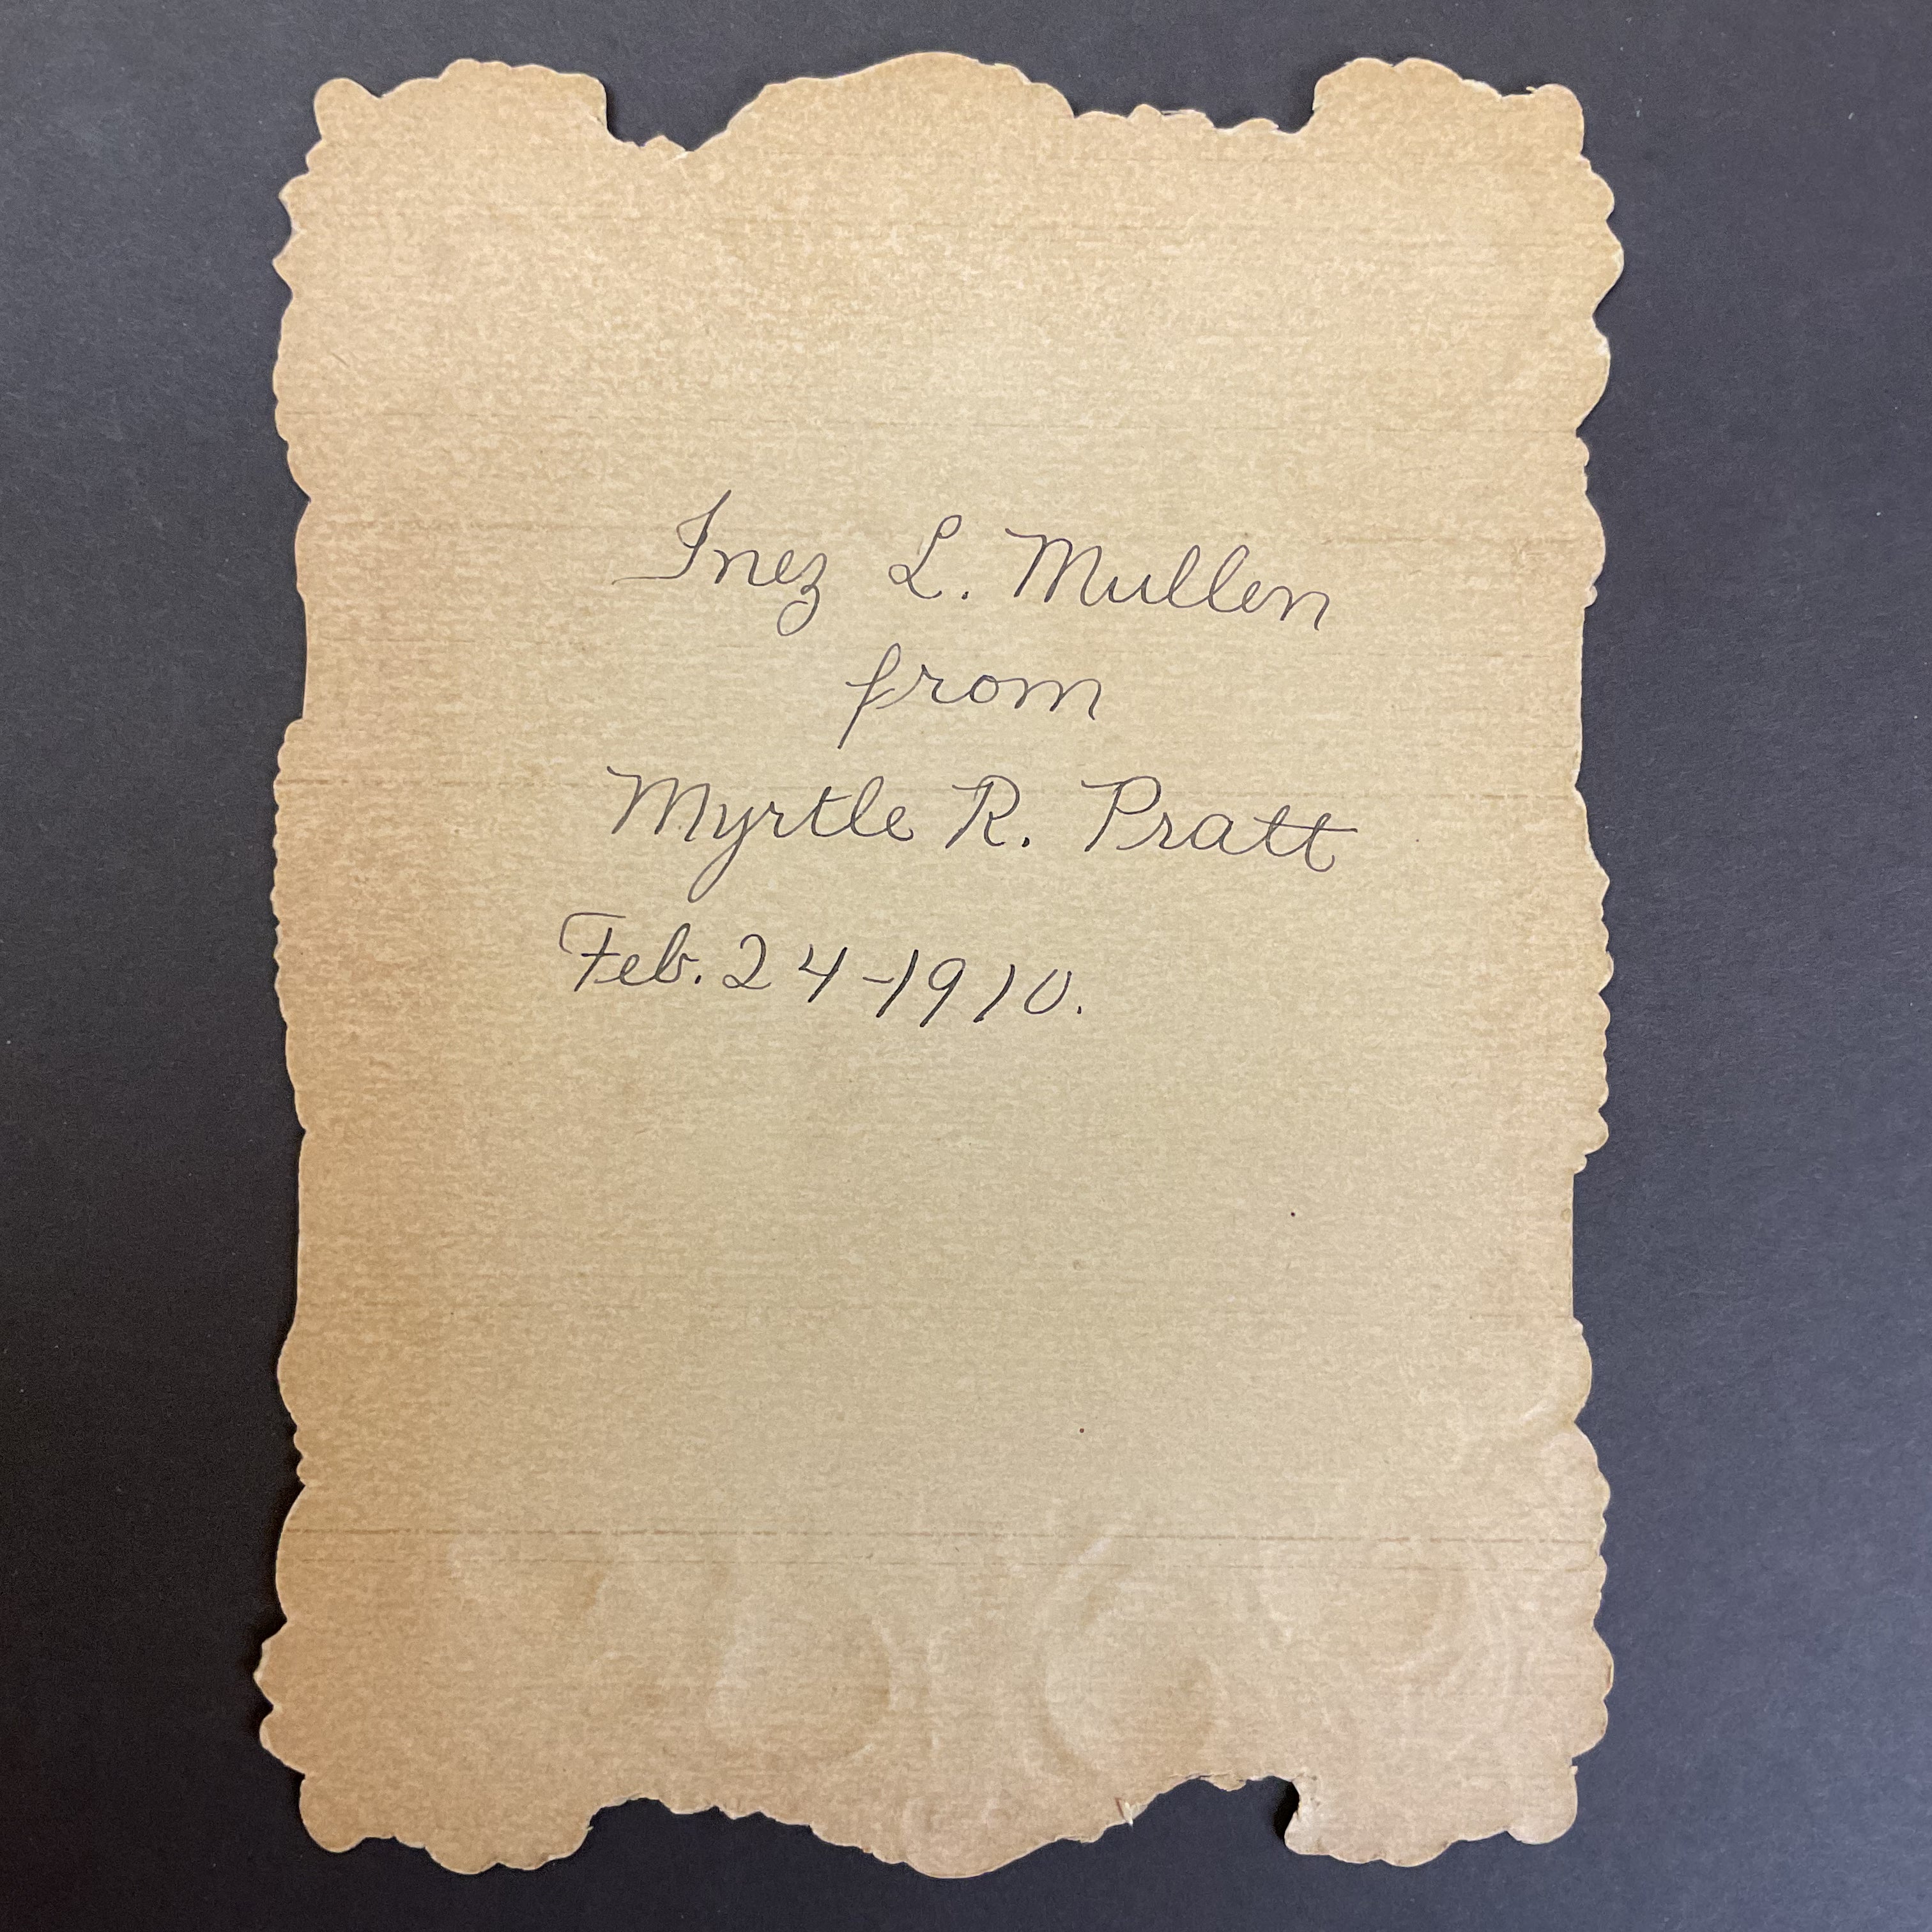 Inez L. Mullen
from
Myrtle R. Pratt
Feb. 24-1910.